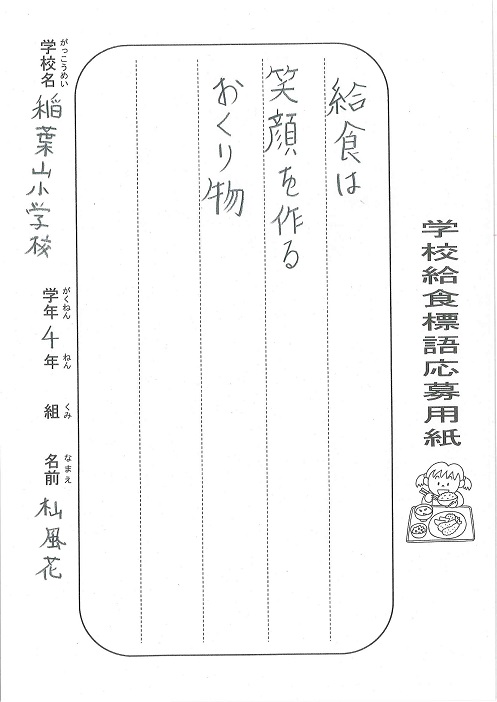 学校給食標語応募用紙
給食は
笑顔を作る
おくり物
がっこうめい
学校名 稲葉山小学校
がくねん ねん
学年 4年
くみ
組
なまえ
名前 杣風花